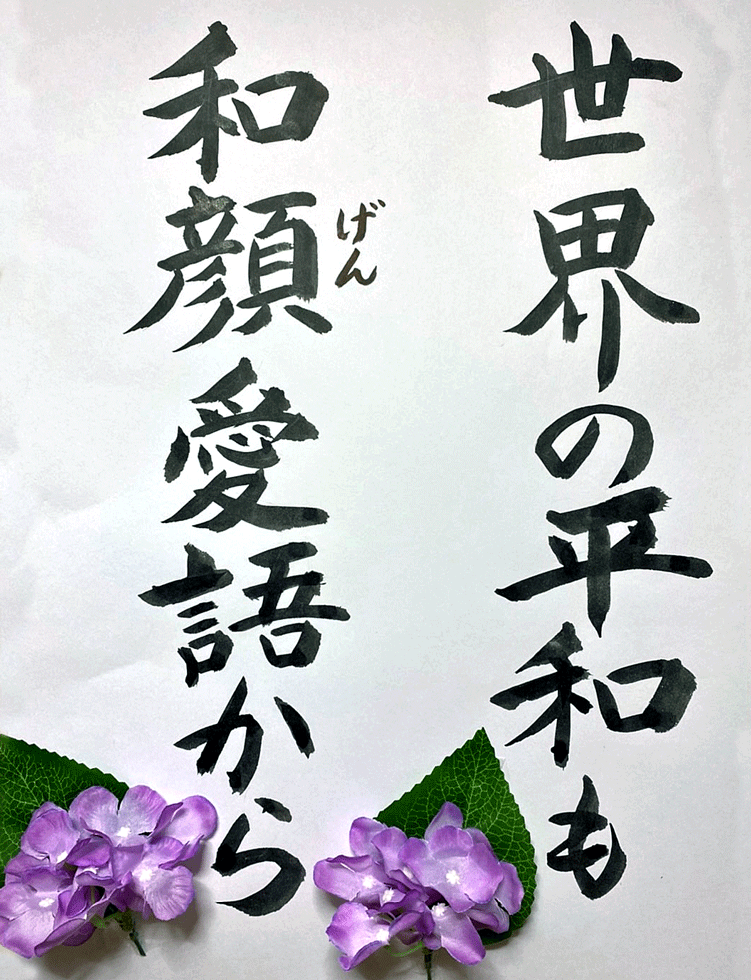 世界の平和も
和顔愛語から
げん